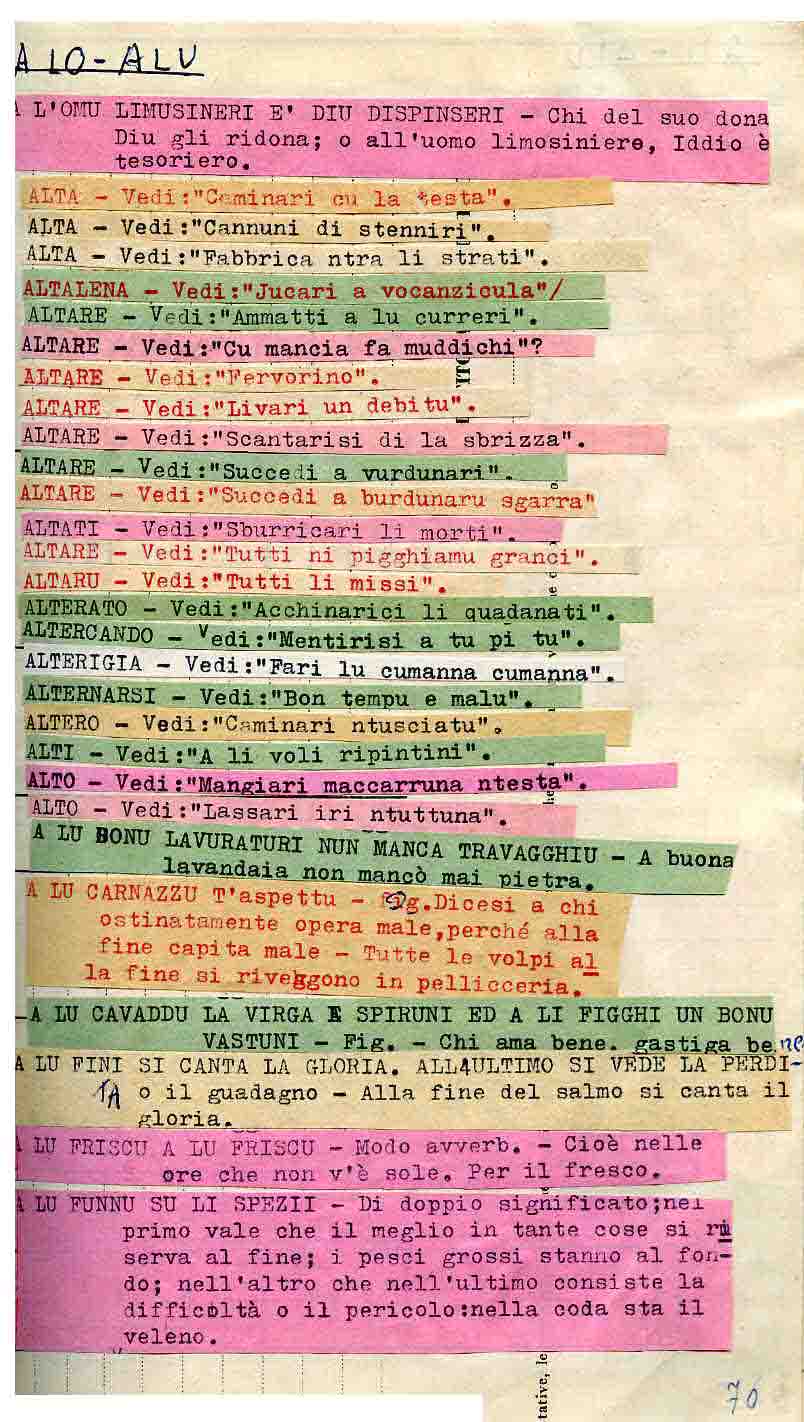 A LO-ALU
A L'OMU LIMUSINERI E' DIU DISPINSERI - Chi del suo dona
Diu gli ridona; o all'uomo limosiniere, Iddio è
tesoriero.
ALTA - Vedi:"Caminari cu la testa".
ALTA - Vedi:"Cannuni di stenniri".
ALTA - Vedi:"Fabbrica ntra li strati".
ALTALENA - Vedi:"Jucari a vocanzicula"/
ALTARE - Vedi:"Ammatti a lu curreri".
ALTARE - Vedi:"Cu mancia fa muddichi"?
ALTARE - Vedi:"Fervorino".
ALTARE - Vedi:"Livari un debitu".
ALTARE - Vedi:"Scantarisi di la sbrizza".
ALTARE - Vedi:"Succedi a vurdunari".
ALTARE - Vedi:"Succedi a burdunaru sgarra"
ALTATI - Vedi:"Sburricari li morti".
ALTARE - Vedi:"Tutti ni pigghiamu granci".
ALTARU - Vedi:"Tutti li missi".
ALTERATO - Vedi:"Acchinarici li quadanati".
ALTERCANDO - Vedi:"Mentirisi a tu pi tu".
ALTERIGIA - Vedi:"Fari lu cumanna cumanna".
ALTERNARSI - Vedi:"Bon tempu e malu".
ALTERO - Vedi:"Caminari ntusciatu".
ALTI - Vedi:"A li voli ripintini".
ALTO - Vedi:"Mangiari maccarruna ntesta".
ALTO - Vedi:"Lassari iri ntuttuna".
A LU BONU LAVURATURI NUN MANCA TRAVAGGHIU - A buona
lavandaia non mancò mai pietra.
A LU CARNAZZU T'aspettu - Fig.Dicesi a chi
ostinatamente opera male,perché alla
fine capita male - Tutte le volpi al
la fine si riveggono in pellicceria.
A LU CAVADDU LA VIRGA E SPIRUNI ED A LI FIGGHI UN BONU
VASTUNI - Fig. - Chi ama bene. gastiga bene
A LU FINI SI CANTA LA GLORIA. ALL4ULTIMO SI VEDE LA PERDI-
TA o il guadagno - Alla fine del salmo si canta il
gloria.
A LU FRISCU A LU FRISCU - Modo avverb. - Cioè nelle
ore che non v'è sole. Per il fresco.
A LU FUNNU SU LI SPEZII - Di doppio significato;nel
primo vale che il meglio in tante cose si ri
serva al fine; i pesci grossi stanno al fon-
do; nell'altro che nell'ultimo consiste la
difficoltà o il pericolo:nella coda sta il
veleno.
tative, le
70